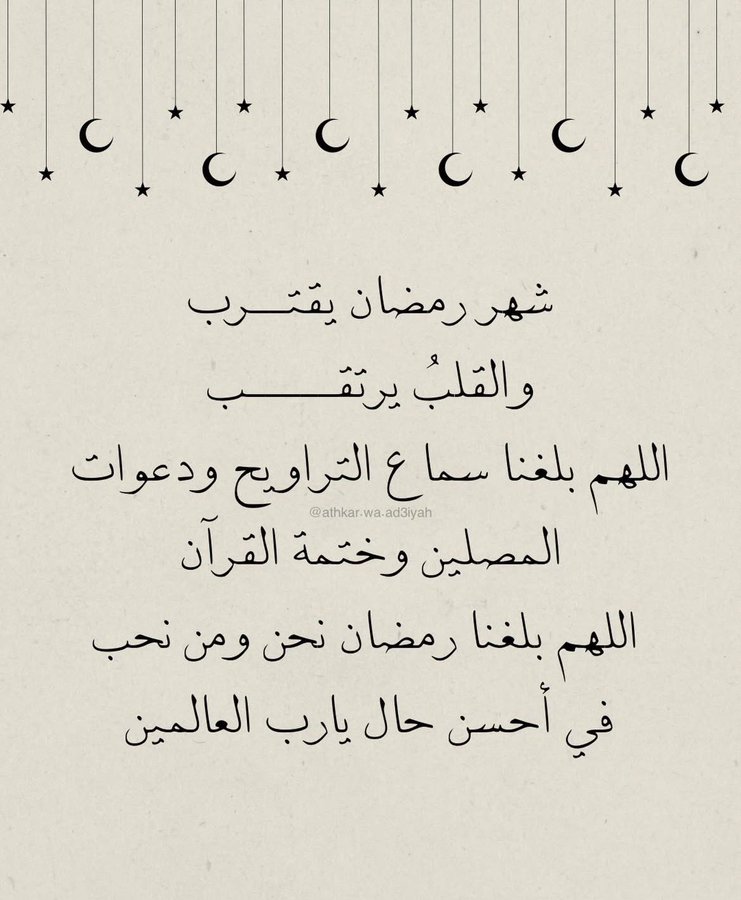 شهر رمضان يقتـــرب
والقلبُ يرتقــــــب
اللهم بلغنا سماع التراويح ودعوات
@athkar.wa.ad3iyah
المصلين وختمة القرآن
اللهم بلغنا رمضان نحن ومن نحب
في أحسن حال يارب العالمين